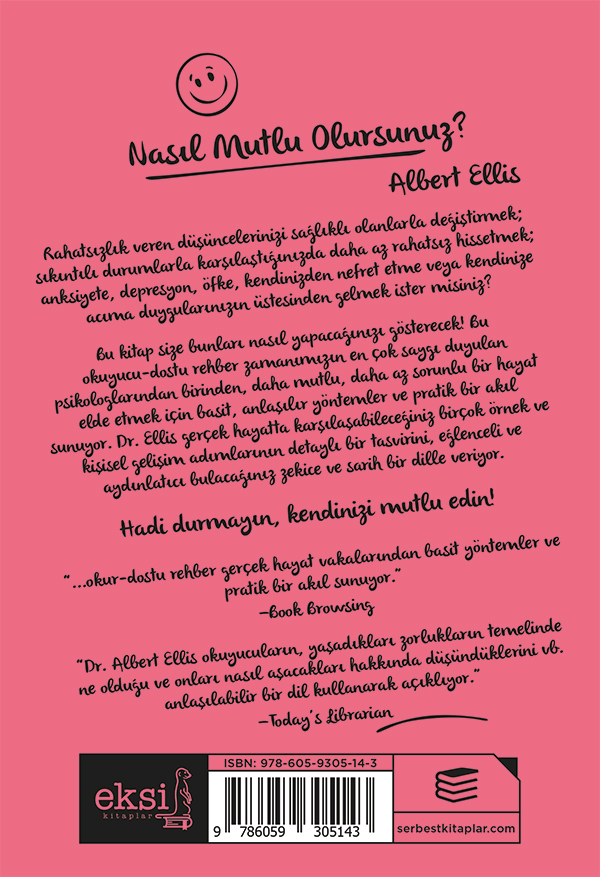 Nasıl Mutlu Olursunuz?
Albert Ellis
Rahatsızlık veren düşüncelerinizi sağlıklı olanlarla değiştirmek;
sıkıntılı durumlarla karşılaştığınızda daha az rahatsız hissetmek;
anksiyete, depresyon, öfke, kendinizden nefret etme veya kendinize
acıma duygularınızın üstesinden gelmek ister misiniz?
Bu kitap size bunları nasıl yapacağınızı gösterecek! Bu
okuyucu-dostu rehber zamanımızın en çok saygı duyulan
psikologlarından birinden, daha mutlu, daha az sorunlu bir hayat
elde etmek için basit, anlaşılır yöntemler ve pratik bir akıl
sunuyor. Dr. Ellis gerçek hayatta karşılaşabileceğiniz birçok örnek ve
kişisel gelişim adımlarının detaylı bir tasvirini, eğlenceli ve
aydınlatıcı bulacağınız zekice ve sarih bir dille veriyor.
Hadi durmayın, kendinizi mutlu edin!
"...okur-dostu rehber gerçek hayat vakalarından basit yöntemler ve
pratik bir akıl sunuyor."
—Book Browsing
"Dr. Albert Ellis okuyucuların, yaşadıkları zorlukların temelinde
ne olduğu ve onları nasıl aşacakları hakkında düşündüklerini vb.
anlaşılabilir bir dil kullanarak açıklıyor."
—Today's Librarian
eksi
kitaplar
ISBN: 978-605-9305-14-3
9 786059 305143
serbestkitaplar.com